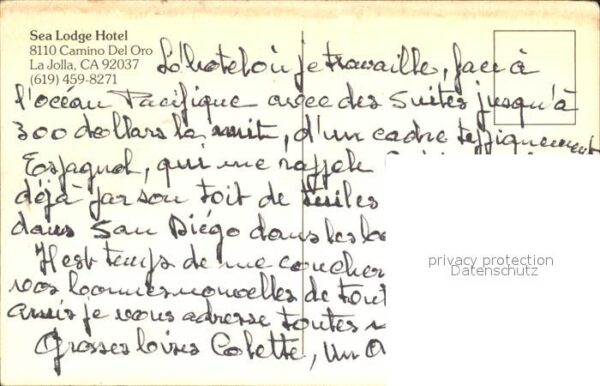 Sea Lodge Hotel
8110 Camino Del Oro
La Jolla, CA 92037
(619) 459-8271
L'hotel où je travaille, face à
l'océan Pacifique avec des suites jusqu'à
300 dollars la nuit, d'un cadre typiquement
Espagnol, qui me rappele
déjà par son toit de tuiles
dans San Diégo dans les
Il est temps de me coucher
vos bonnes nouvelles de tout
amis je vous adresse toutes
Grosses bises Colette, un
privacy protection
Datenschutz